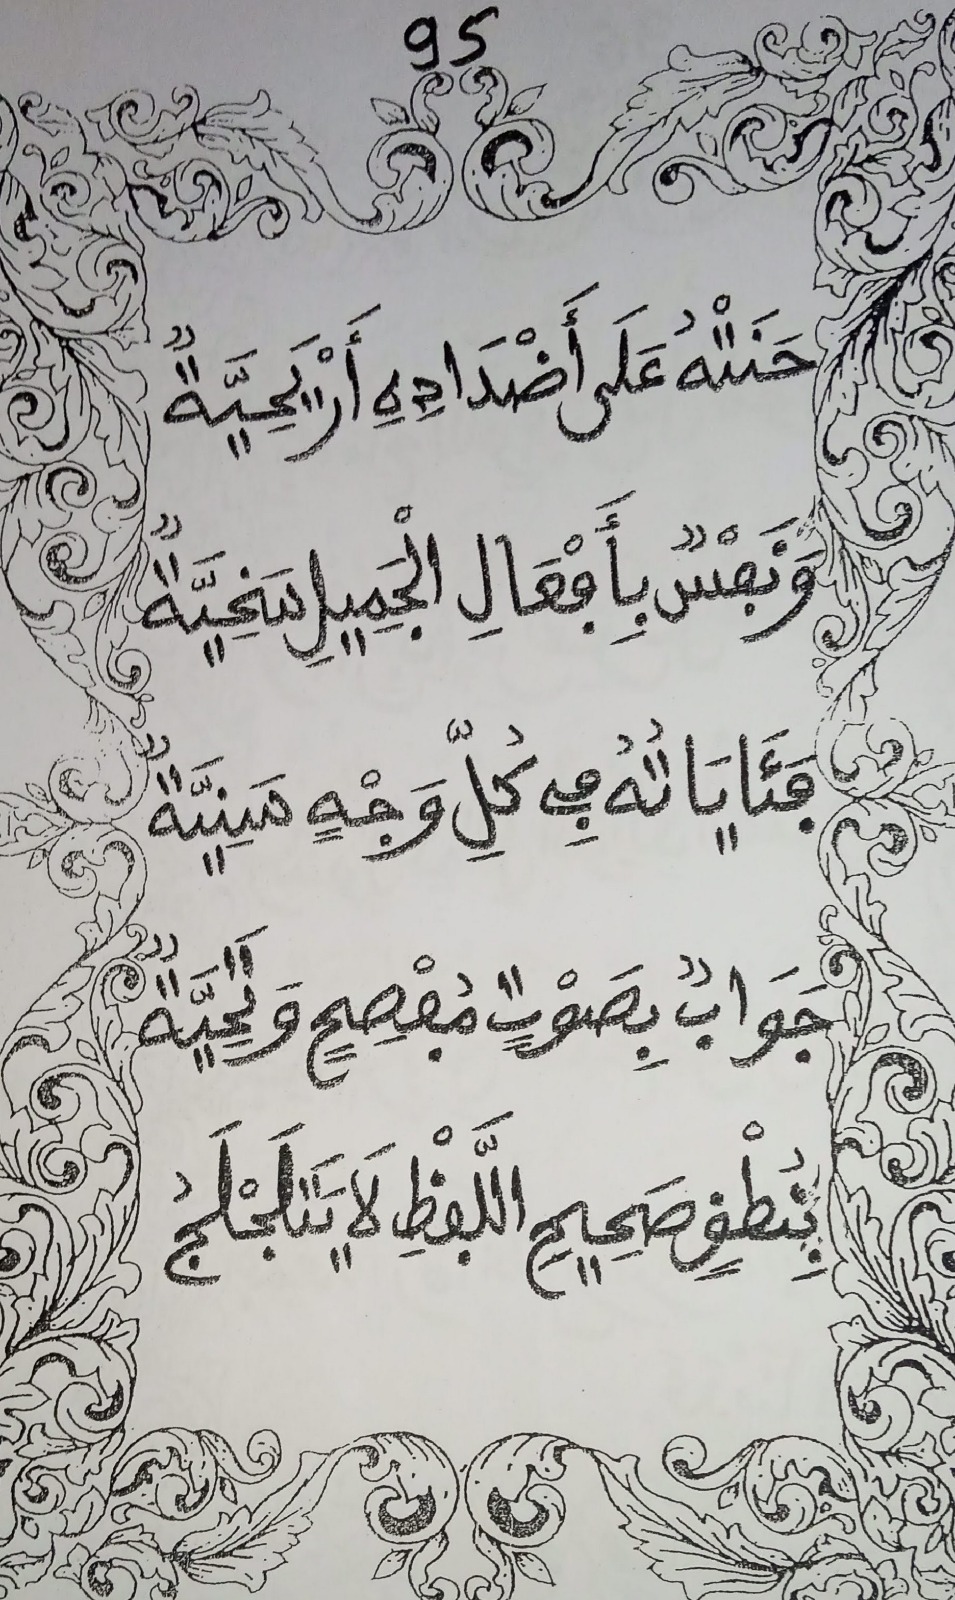 95
حَنَتْهُ عَلَى أَضْدَادِهِ أَرْيَحِيَّةٌ
وَنَفْسٌ بِأَفْعَالِ الْجَمِيلِ سَخِيَّةٌ
فَـَٔايَاتُهُ فِي كُلِّ وَجْهٍ سَنِيَّةٌ
جَوَابٌ بِصَوْتٍ مُفْصِحٍ وَتَحِيَّةٌ
بِنُطْقٍ صَحِيحِ اللَّفْظِ لَا يَتَلَجْلَجُ